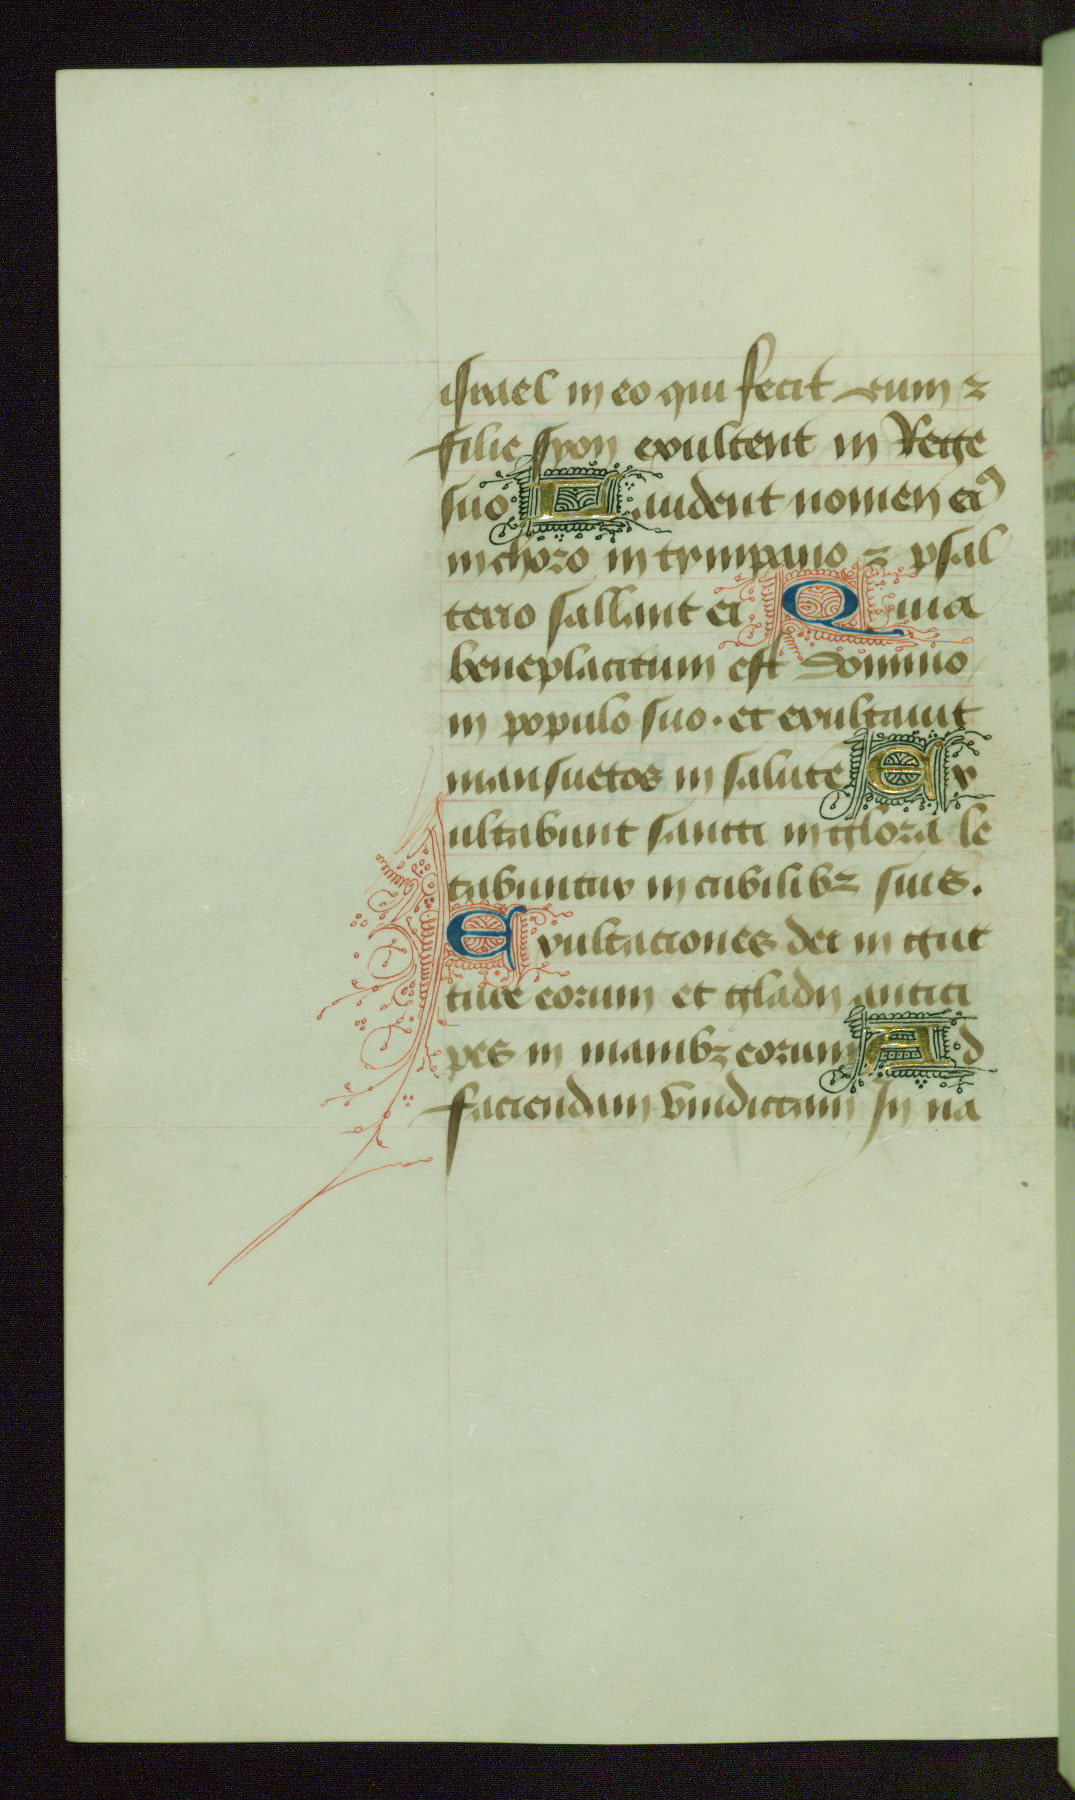 israel in eo qui fecit eum ⁊
filie syon exultent in Rege
suo Laudent nomen eiꝰ
in choro in tympano ⁊ psal
terio sallant ei Quia
beneplacitum est domino
in populo suo · et exultauit
mansuetos in salute Ex
ultabunt sancti in gloria le
tabuntur in cubilibꝫ suis.
Exultaciones dei in gut
ture eorum et gladii antici
pes in manibꝫ eorum Ad
faciendam vindictam In na